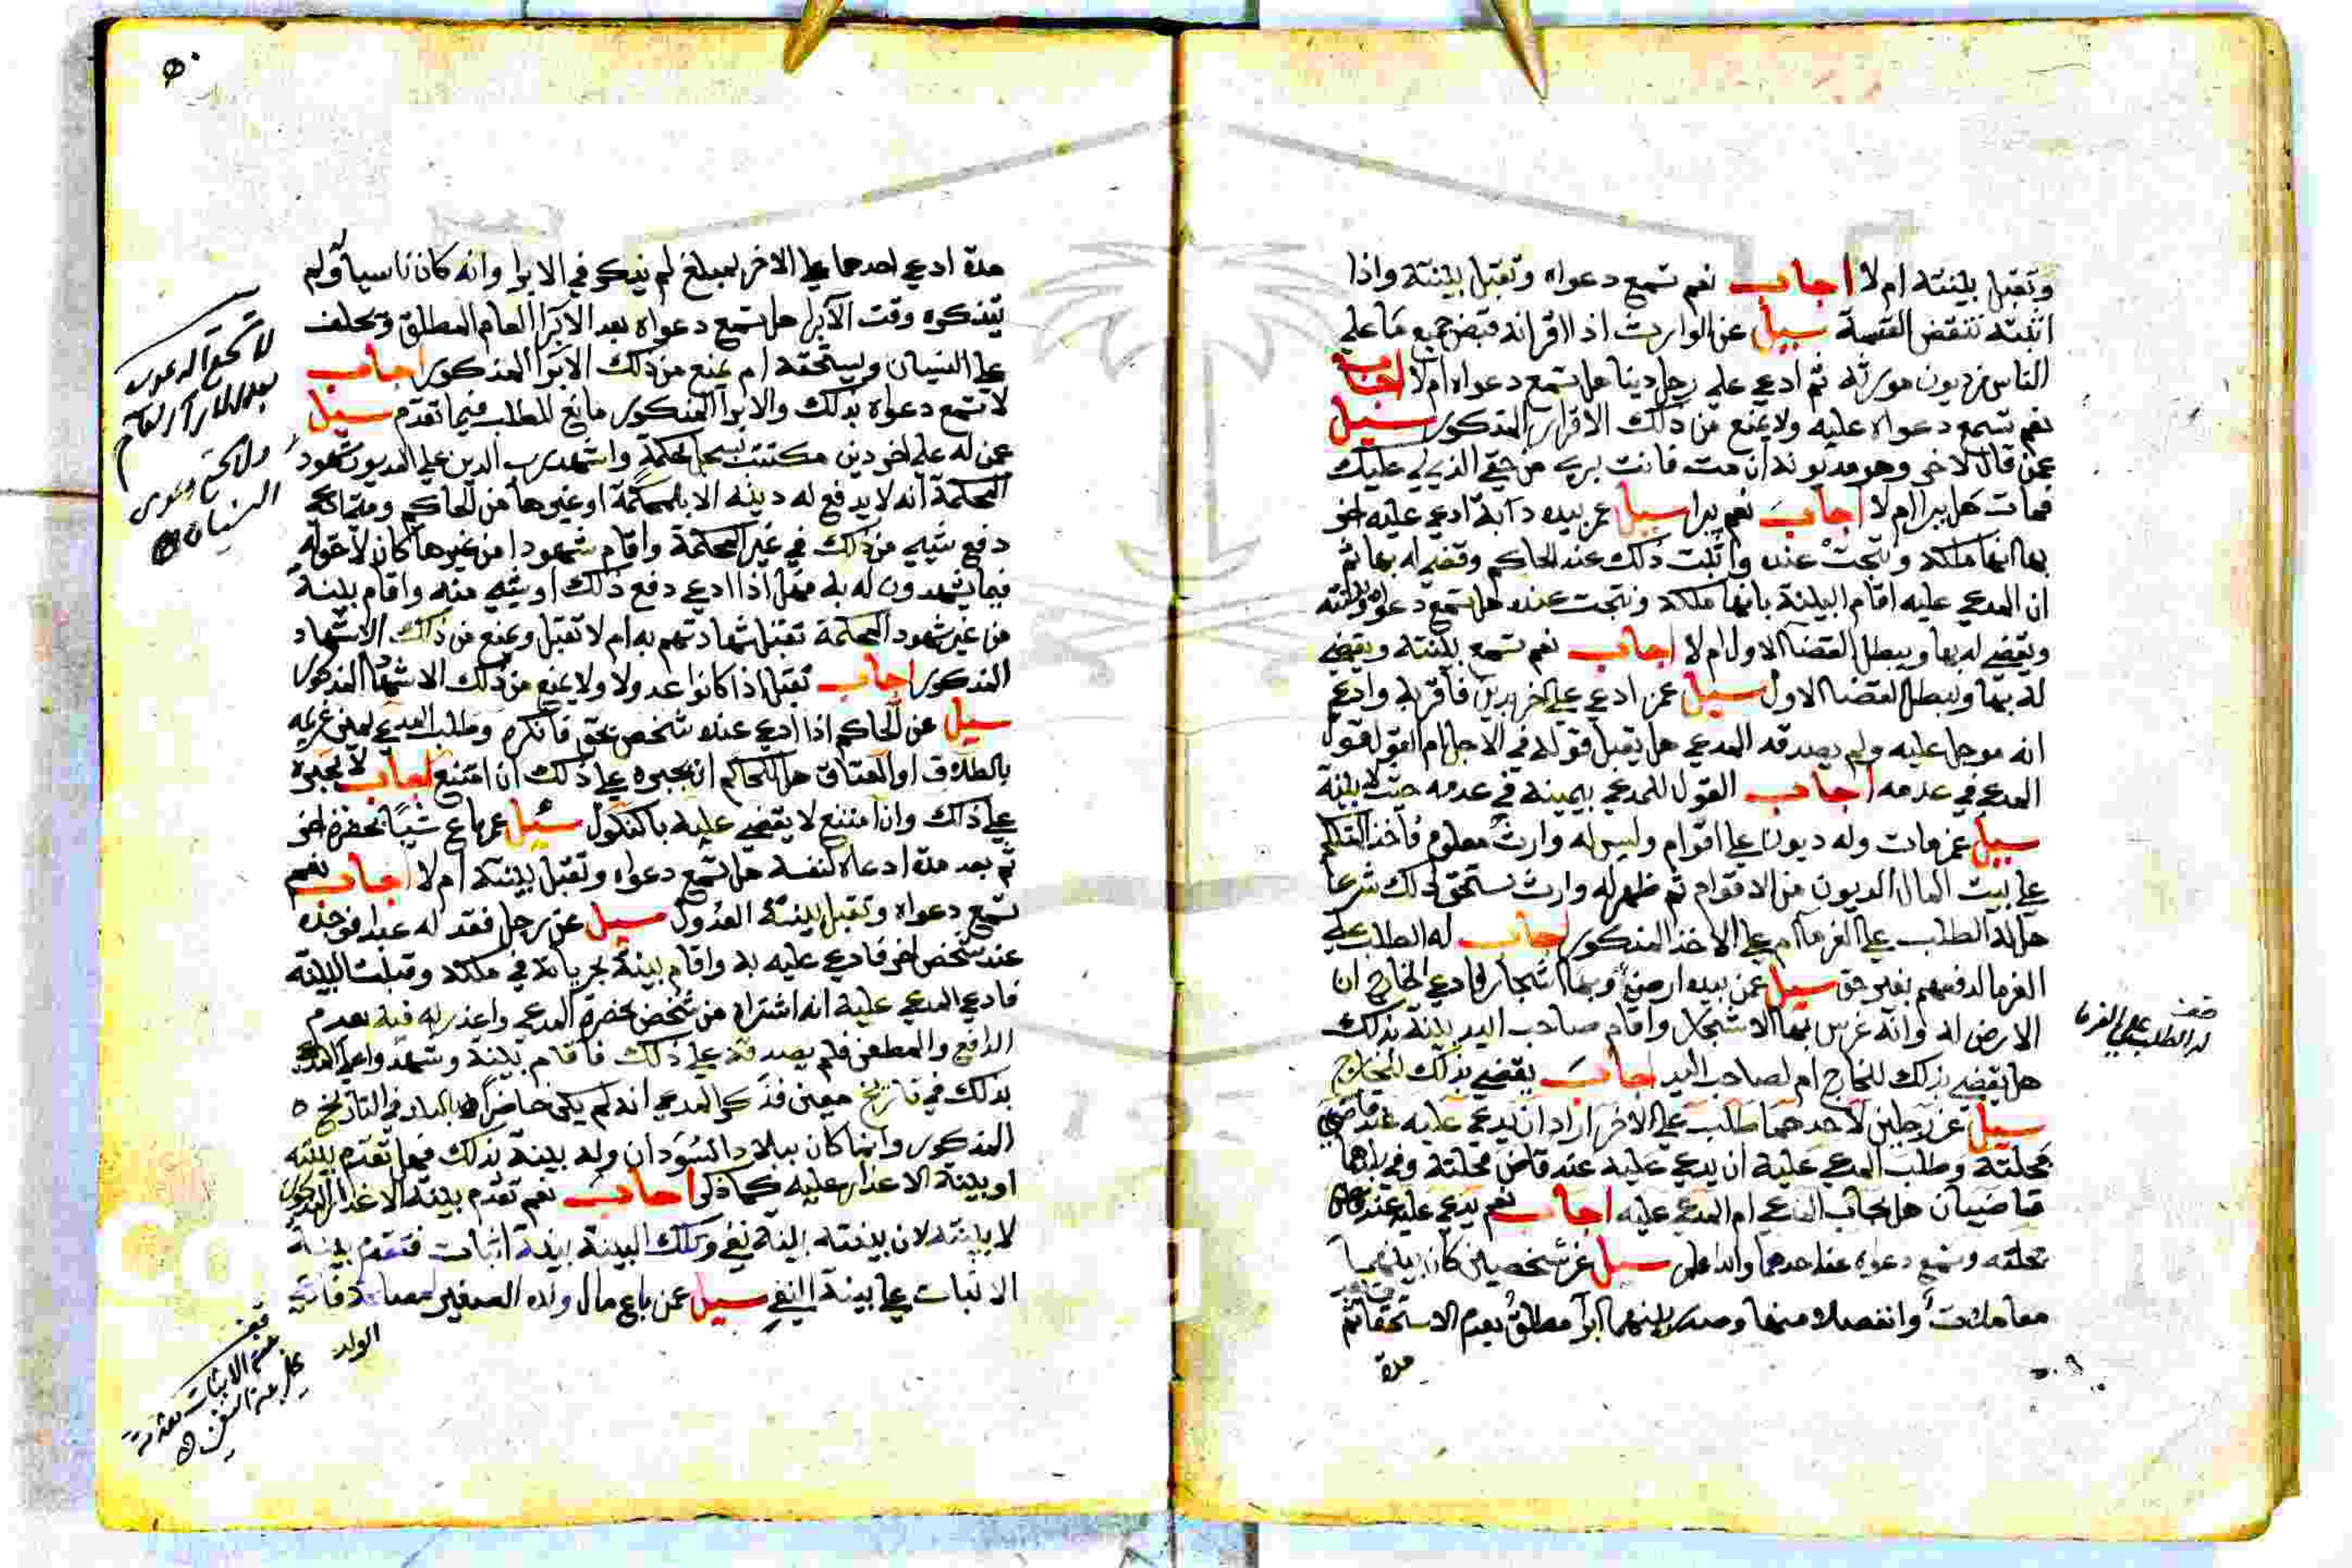 وتقبل بينته ام لا اجاب نعم تسمع دعواه وتقبل بينته واذا
اثبته تنتقض القسمة سيل عن الوارث اذا اقر انه قبض جميع ما على
الناس من ديون مورثه ثم ادعي على رجل دينا هل تسمع دعواه ام لا اجاب
نعم تسمع دعواه عليه ولا يمنع من ذلك الاقرار المذكور سيل
عمن قال لاخر وهو مديونه ان مت فانت بري من حقي الذي لي عليك
فمات هل يبرا ام لا اجاب نعم يبرا سيل عمن بيده دابة ادعي عليه اخر
بها انها ملكه ونتجت عنده واثبت ذلك عند الحاكم وقضي له بها ثم
ان المدعي عليه اقام البينة بانها ملكه ونتجت عنده هل تسمع دعواه وبينته
ويقضي له بها ويبطل القضا الاول ام لا اجاب نعم تسمع بينته ويقضي
له بها ويبطل القضا الاول سيل عمن ادعي على اخر بدين فاقر به وادعي
انه موجل عليه ولم يصدقه المدعي هل يقبل قوله في الاجل ام القول قول
المدعي في عدمه اجاب القول للمدعي بيمينه في عدمه حيث لا بينة
سيل عمن مات وله ديون على اقوام وليس له وارث معلوم فاخذ المتكلم
على بيت المال الديون من الاقوام ثم ظهر له وارث يستحق ذلك شرعا
هل له الطلب على الغرما ام على الاخذ المذكور اجاب له الطلب على
الغرما لدفعهم بغير حق سيل عمن بيده ارض وبها اشجار فادعي الخارج ان
الارض له وانه غرس بها الاشجار واقام صاحب اليد بينة بذلك
هل يقضي بذلك للخارج ام لصاحب اليد اجاب يقضي بذلك للخارج
سيل عن رجلين لاحدهما طلب على الاخر اراد ان يدعي عليه عند قاضي
محلته وطلب المدعي عليه ان يدعي عليه عند قاض محلته وفي بلدهما
قاضيان هل يجاب المدعي ام المدعي عليه اجاب نعم يدعي عليه عند قاضي
محلته وتسمع دعواه عند احدهما والله اعلم سيل عن شخصين كان بينهما
معاملات وانفصلا منها وصدر بينهما ابرا مطلق بعدم الاستحقاق ثم
مدة
قف
له الطلب على الغرما
مدة ادعي احدهما على الاخر بمبلغ لم يذكر في الابرا وانه كان ناسيا ولم
يتذكره وقت الابرا هل تسمع دعواه بعد الابرا العام المطلق ويحلف
على النسيان ويستحقه ام يمنع من ذلك الابرا المذكور اجاب
لا تسمع دعواه بذلك والابرا المذكور مانع للطلب فيما تقدم سيل
عمن له على اخر دين مكتتب بسجل المحكمة واشهد رب الدين على المديون شهود
المحكمة انه لا يدفع له دينه الا بالمحكمة او غيرها من الحاكم ومتما
دفع شي من ذلك في غير المحكمة واقام شهودا من غيرها كان لا حق له
فيما يشهدون له به فهل اذا ادعي دفع ذلك او شي منه واقام بينة
من غير شهود المحكمة تقبل شهادتهم به ام لا تقبل ويمنع من ذلك الاشهاد
المذكور اجاب تقبل اذا كانوا عدولا ولا يمنع من ذلك الاشهاد المذكور
سيل عن الحاكم اذا ادعي عنده شخص بحق فانكره وطلب المدعي يمين غريمه
بالطلاق او العتاق هل للحاكم ان يجبره على ذلك ان امتنع اجاب لا يجبره
على ذلك وان امتنع لا يقضي عليه بالنكول سيل عمن باع شيا بحضرة اخر
ثم بعد مدة ادعاه لنفسه هل تسمع دعواه وتقبل بينته ام لا اجاب نعم
تسمع دعواه وتقبل بينته العدول سيل عن رجل فقد له عبد فوجده
عند شخص اخر فادعي عليه به واقام بينة بجريانه في ملكه وقبلت البينة
فادعي المدعي عليه انه اشتراه من شخص بحضرة المدعي واعذر له فيه بعدم
الدافع والمطعن فلم يصدقه على ذلك فاقام بينة وشهدوا على المدعي
بذلك في تاريخ معين فذكر المدعي انه لم يكن حاضرا بالبلد في التاريخ
المذكور وانما كان ببلاد السودان وله بينة بذلك فهل تقدم بينته
او بينة الاعذار عليه كما ذكر اجاب نعم تقدم بينة الاعذار المذكور
لا بينته لان بينته بينة نفي وتلك البينة بينة اثبات فتقدم بينة
الاثبات على بينة النفي سيل عمن باع مال ولده الصغير لمصلحة فاتي
الولد
لا تسمع الدعوى
بعد الابرا العام
ولا تسمع دعوى
النسيان
قف
بينة الاثبات مقدمة
على بينة النفي